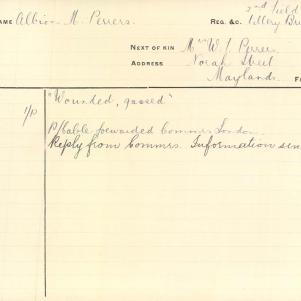 AME Albion M. Perrers. REG. &C. 2nd Field
tillery Br
NEXT OF KIN Mrs W. J. Perrers
ADDRESS Norah Street
Mayland. F
"Wounded, gassed"
I/P
P/Cable forwarded Commrs London.
Reply from Commrs. Information sen